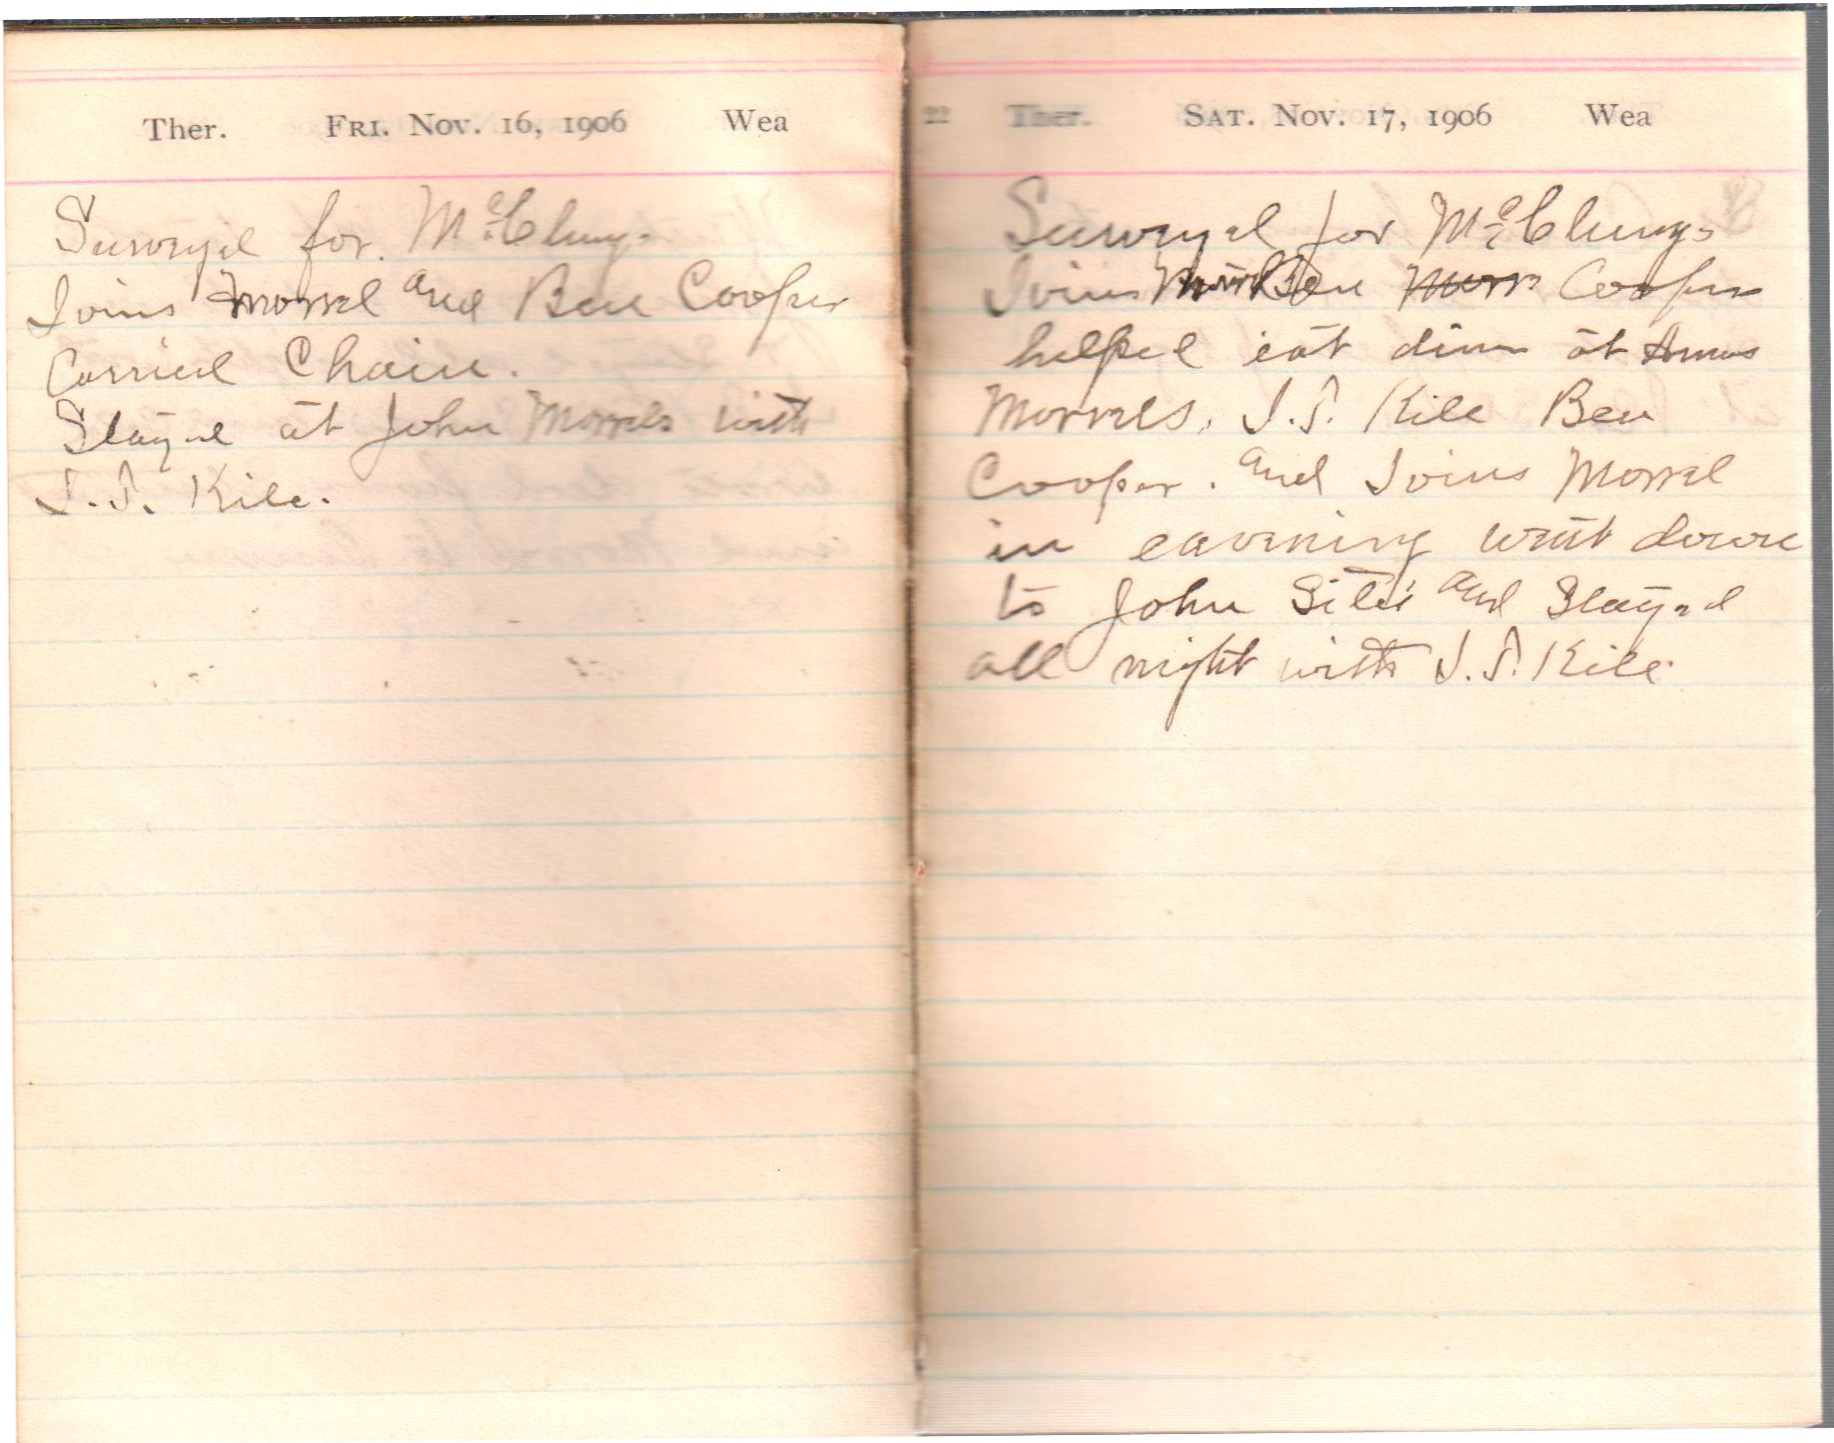 Ther. FRI. Nov. 16, 1906 Wea
Surveyed for McClung.
Morrel and Ben Cooper
Carried Chain.
Stayed at John Morrels with
Kile.
Ther. SAT. Nov. 17, 1906 Wea
Surveyed for McClung
Ben Cooper
helped eat dinn at Amos
Morrels, Kile Ben
Cooper. and Morrel
in eavening went down
to John Sites and Stayed
all night with Kile.